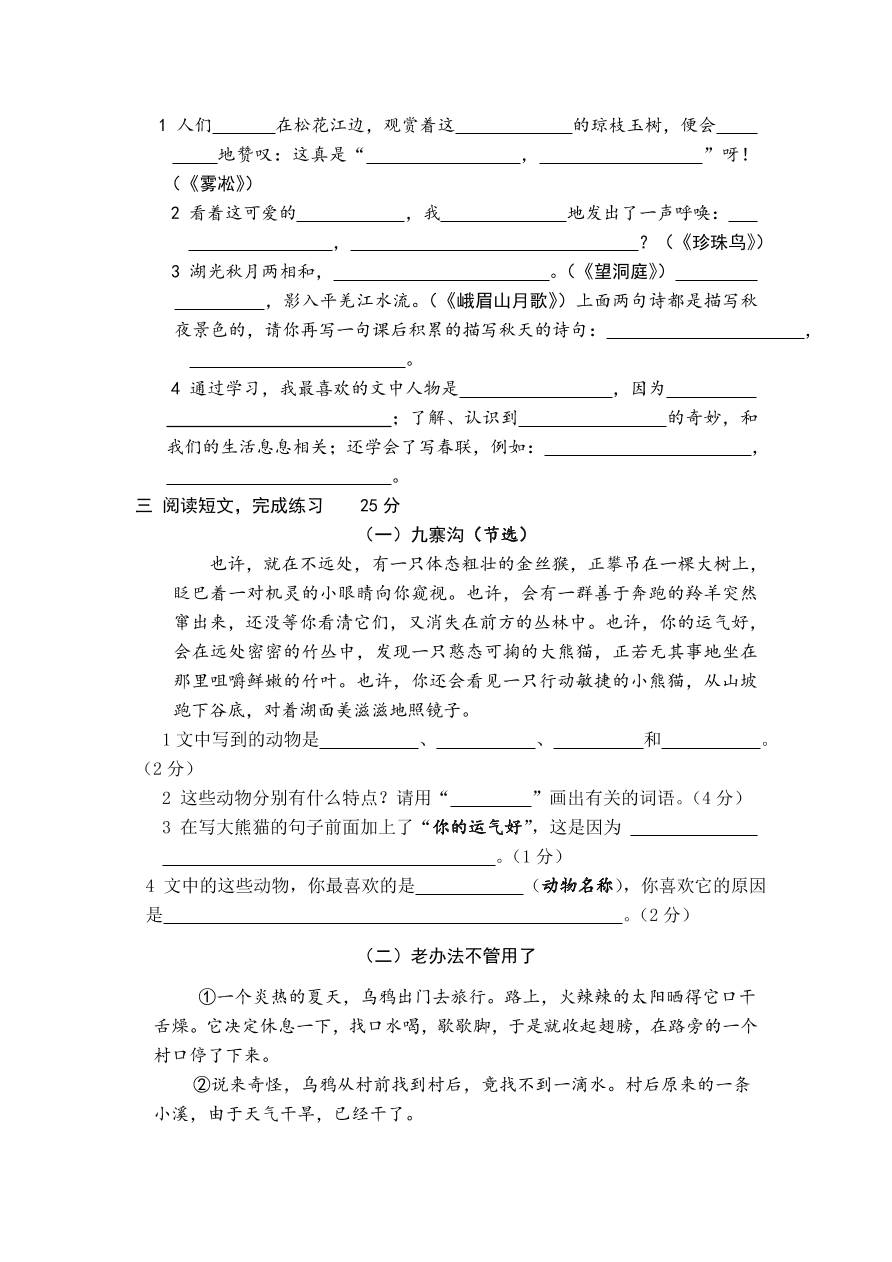 1 人们_______在松花江边，观赏着这_____________的琼枝玉树，便会____
_____地赞叹：这真是“_________________，__________________”呀！
（《雾凇》）
2 看着这可爱的____________，我______________地发出了一声呼唤：___
________________，________________________________？（《珍珠鸟》）
3 湖光秋月两相和，________________________。（《望洞庭》）_________
__________，影入平羌江水流。（《峨眉山月歌》）上面两句诗都是描写秋
夜景色的，请你再写一句课后积累的描写秋天的诗句：______________________，
________________________。
4 通过学习，我最喜欢的文中人物是_________________，因为__________
_________________________；了解、认识到________________的奇妙，和
我们的生活息息相关；还学会了写春联，例如：_______________________，
_________________________。
三 阅读短文，完成练习 25 分
（一）九寨沟（节选）
也许，就在不远处，有一只体态粗壮的金丝猴，正攀吊在一棵大树上，
眨巴着一对机灵的小眼睛向你窥视。也许，会有一群善于奔跑的羚羊突然
窜出来，还没等你看清它们，又消失在前方的丛林中。也许，你的运气好，
会在远处密密的竹丛中，发现一只憨态可掬的大熊猫，正若无其事地坐在
那里咀嚼鲜嫩的竹叶。也许，你还会看见一只行动敏捷的小熊猫，从山坡
跑下谷底，对着湖面美滋滋地照镜子。
1 文中写到的动物是___________、___________、__________和___________。
（2 分）
2 这些动物分别有什么特点？请用“_________”画出有关的词语。（4 分）
3 在写大熊猫的句子前面加上了“你的运气好”，这是因为 ______________
_____________________________________。（1 分）
4 文中的这些动物，你最喜欢的是____________（动物名称），你喜欢它的原因
是___________________________________________________。（2 分）
（二）老办法不管用了
①一个炎热的夏天，乌鸦出门去旅行。路上，火辣辣的太阳晒得它口干
舌燥。它决定休息一下，找口水喝，歇歇脚，于是就收起翅膀，在路旁的一个
村口停了下来。
②说来奇怪，乌鸦从村前找到村后，竟找不到一滴水。村后原来的一条
小溪，由于天气干旱，已经干了。